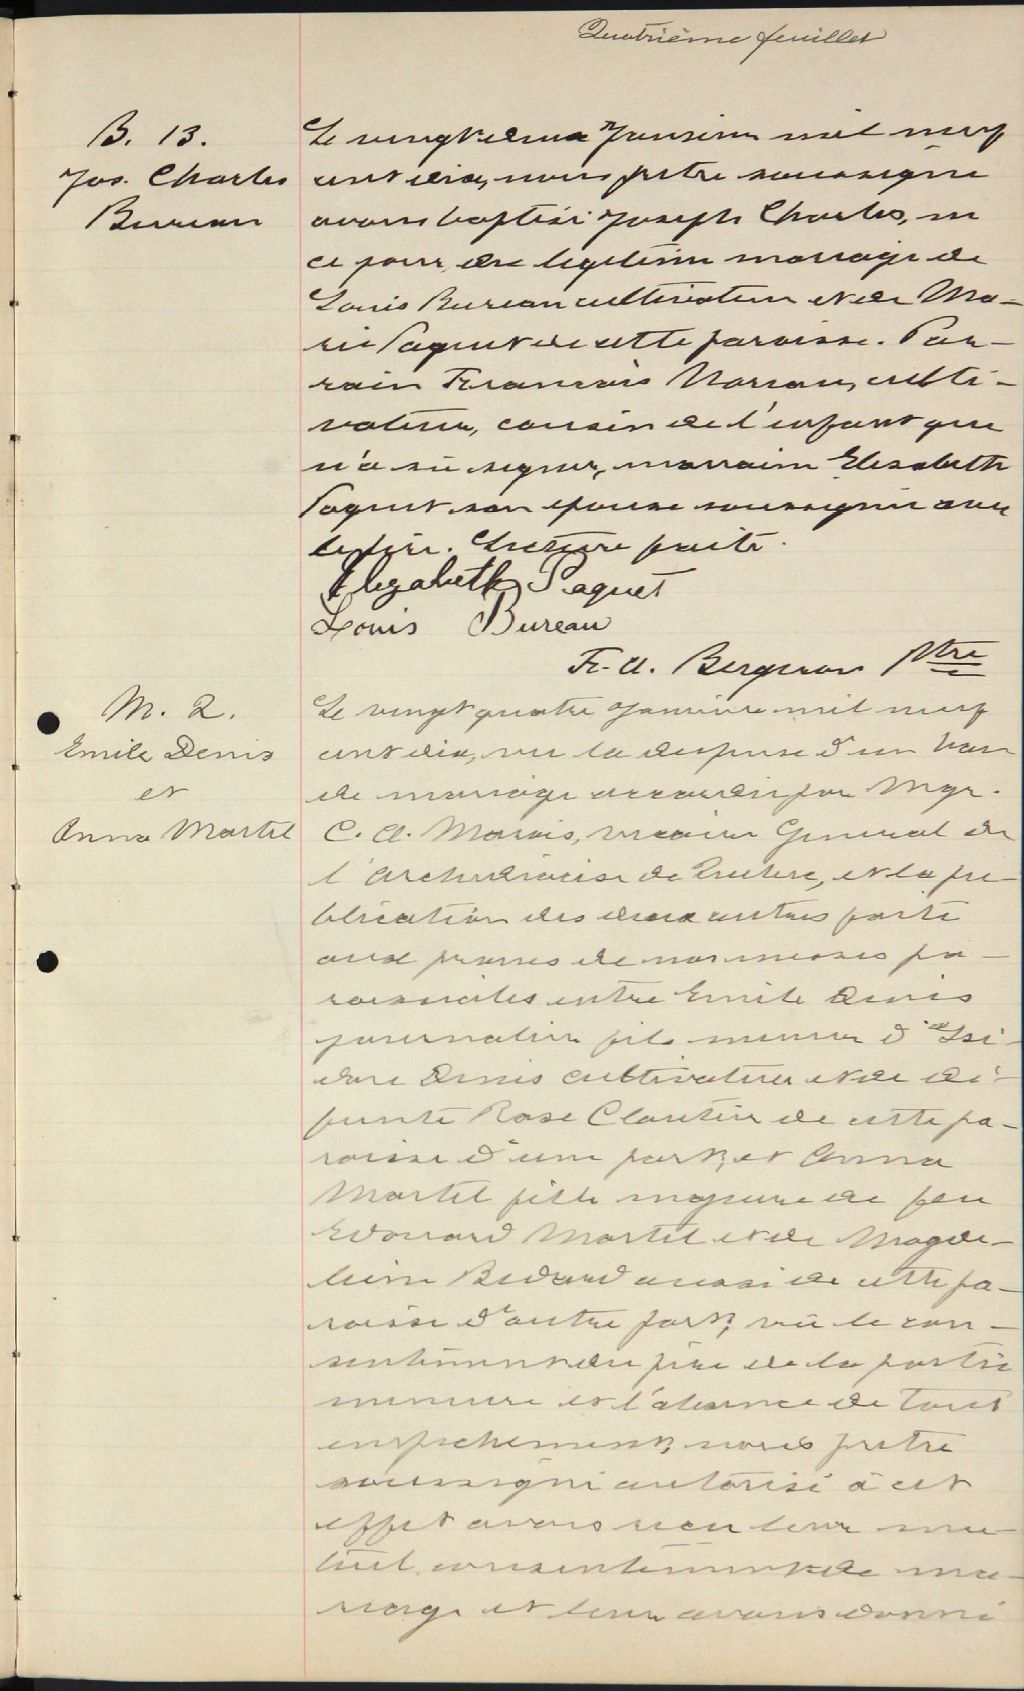 Quatrième feuillet
B. 13.
Jos. Charles
Bureau
Le vingt deux Janvier mil neuf
cent dix, nous prêtre soussigné
avons baptisé Joseph Charles, né
ce jour, du légitime mariage de
Louis Bureau cultivateur et de Ma-
rie Paquet de cette paroisse. Par-
rain François culti-
vateur, cousin de l'enfant qui
n'a su signer, marraine Elisabeth
Paquet son épouse soussignée avec
le père. Lecture faite.
Elizabeth Paquet
Louis Bureau
F. A. Bergeron Ptre
M. 2.
Emile Denis
et
Anna Martel
Le vingt quatre Janvier mil neuf
cent dix, vu la dispense d'un ban
de mariage accordée par Mgr.
C. A. Marois, vicaire Général de
l'Archidiocèse de Québec, et la pu-
blication des deux autres faite
aux prônes de nos messes pa-
roissiales entre Emile Denis
journalier fils mineur d'Isi-
dore Denis cultivateur et de dé-
funte Rose Cloutier de cette pa-
roisse d'une part, et Anna
Martel fille majeure de feu
Edouard Martel et de Magde-
leine Bedard aussi de cette pa-
roisse d'autre part, vu le con-
sentement du père de la partie
mineure et l'absence de tout
empêchement, nous prêtre
soussigné autorisé à cet
effet avons reçu leur mu-
tuel consentement de ma-
riage et leur avons donné